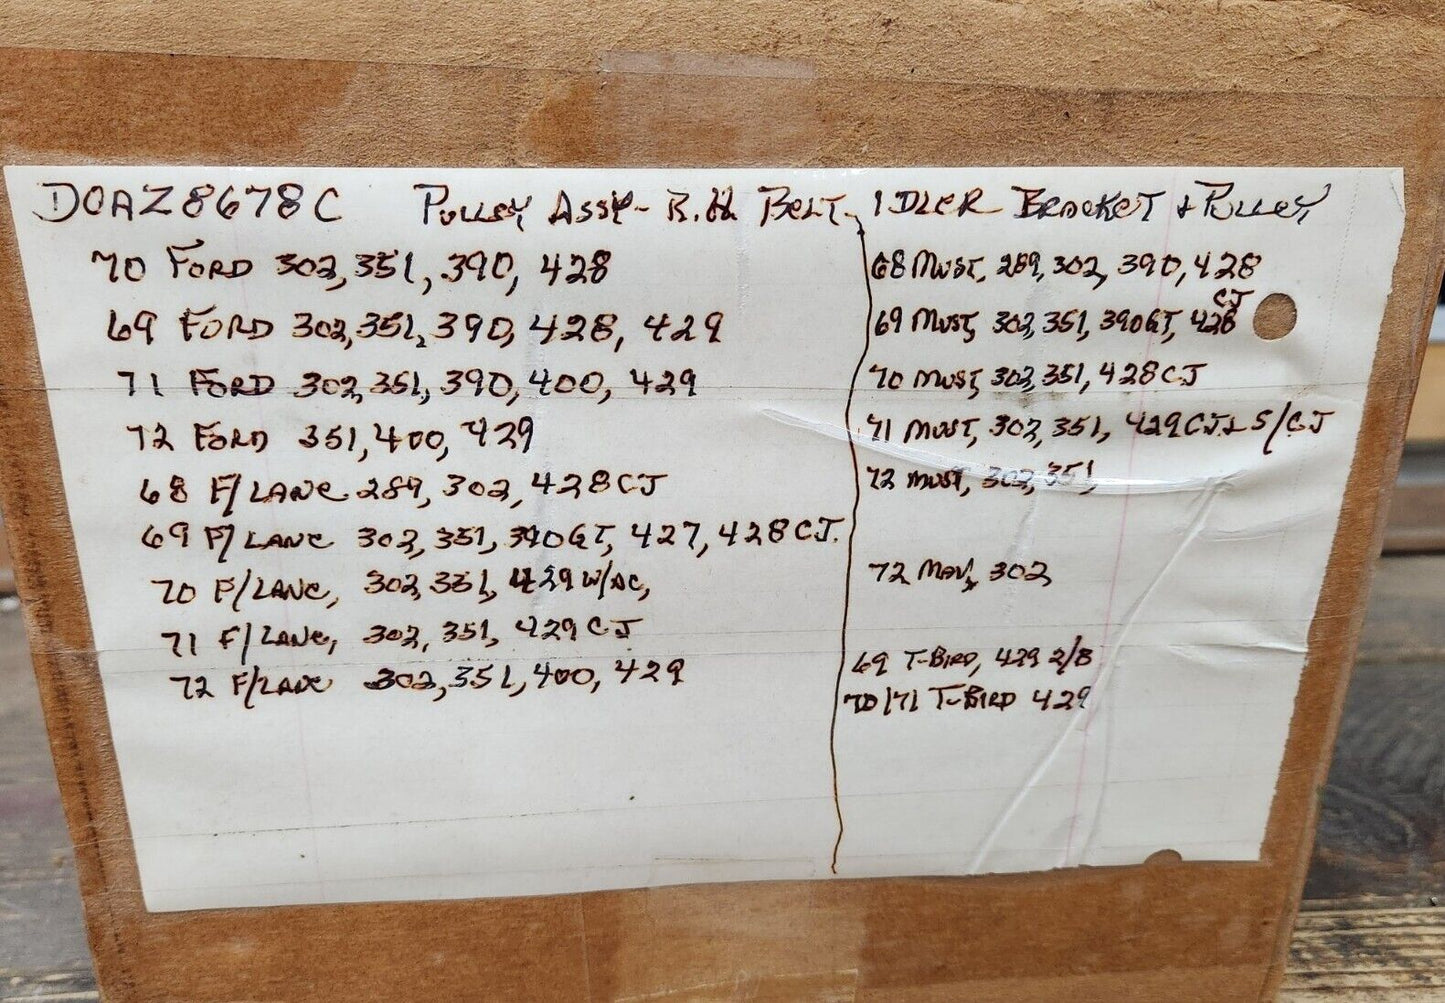 DOAZ8678C PULLEY ASSY- R.H. BELT- IDLER BRACKET & PULLEY
70 FORD 302, 351, 390, 428
69 FORD 302, 351, 390, 428, 429
71 FORD 302, 351, 390, 400, 429
72 FORD 351, 400, 429
68 F/LANE 289, 302, 428CJ
69 F/LANE 302, 351, 390GT, 427, 428CJ.
70 F/LANE, 302, 351, 429 W/AC,
71 F/LANE, 302, 351, 429CJ
72 F/LANE 302, 351, 400, 429
68 MUST, 289, 302, 390, 428
69 MUST, 302, 351, 390GT, 428 CJ
70 MUST, 302, 351, 428CJ
71 MUST, 302, 351, 429CJ & S/CJ
72 MUST, 302, 351,
72 MAV, 302,
69 T-BIRD, 429 2/B
70/71 T-BIRD 429